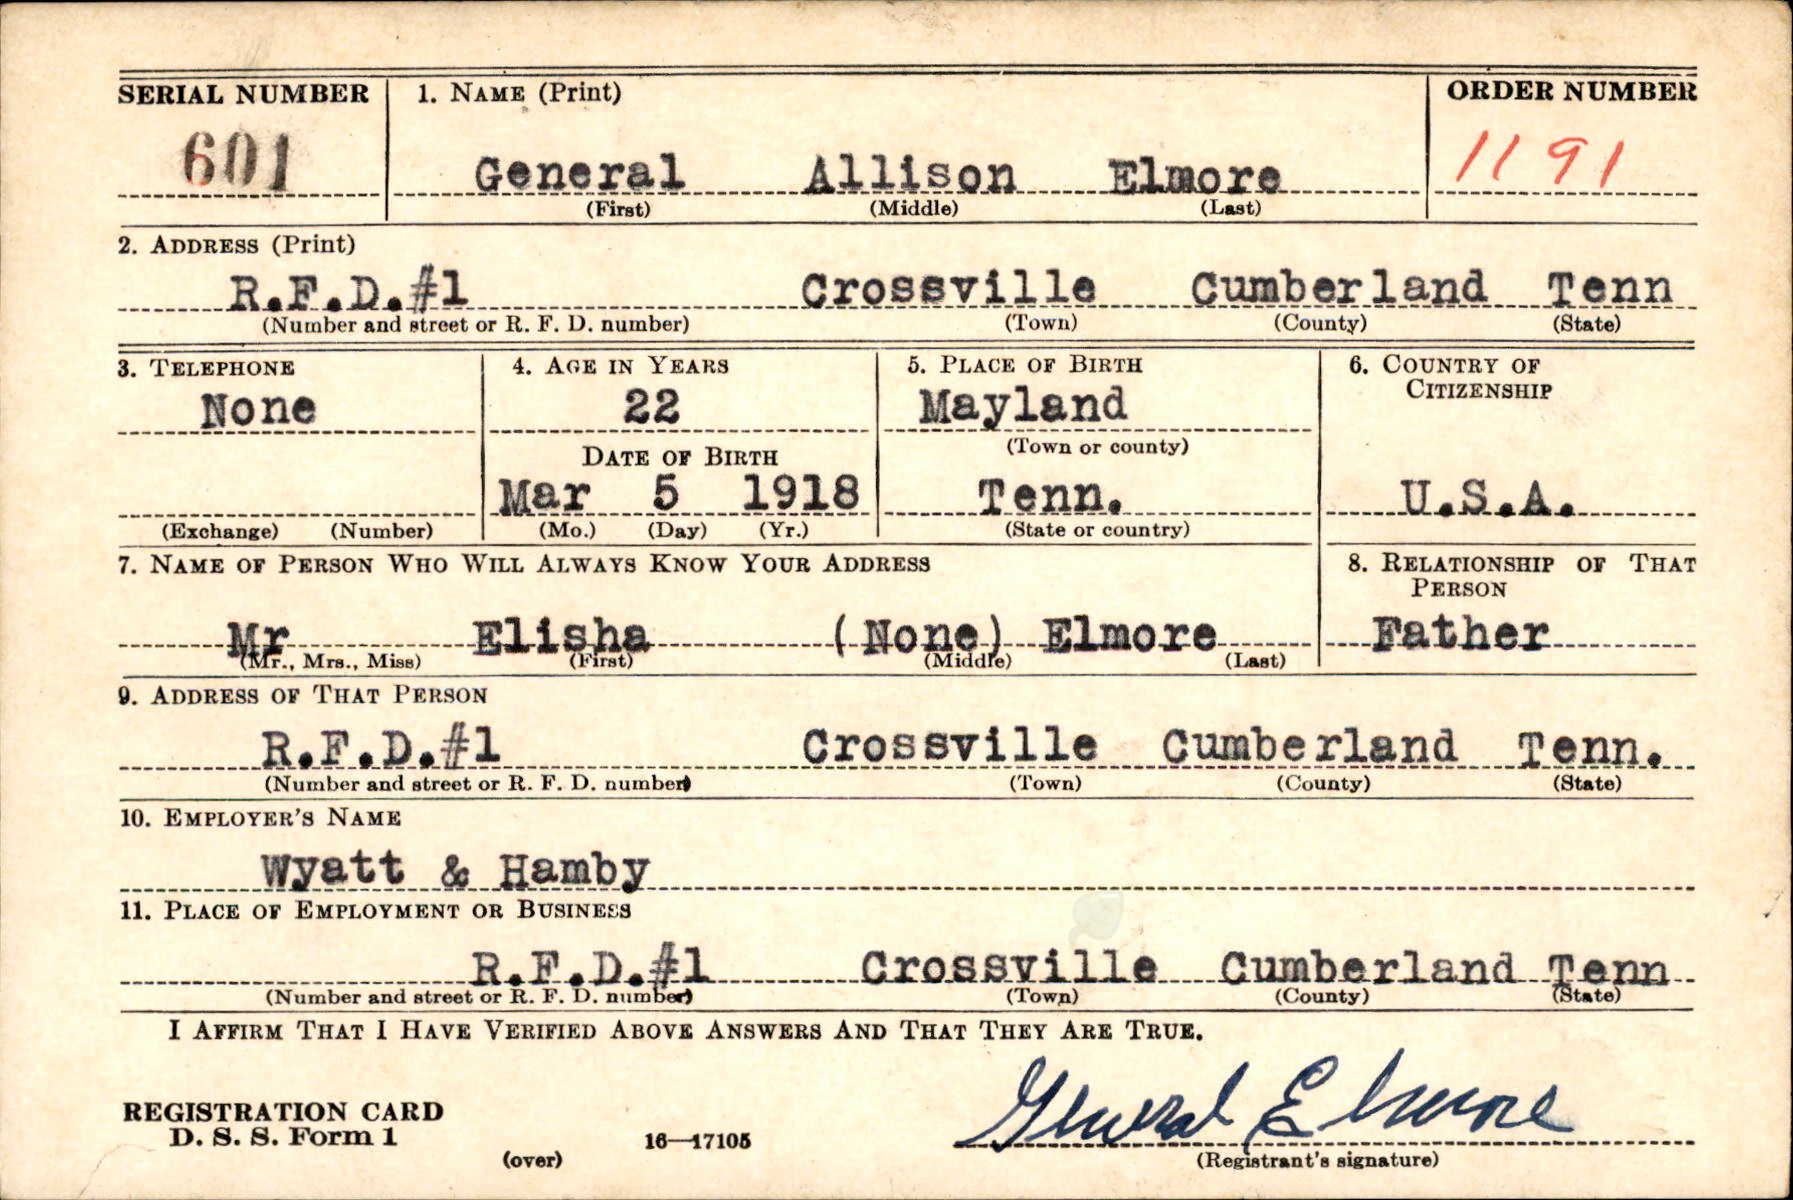 SERIAL NUMBER 1. NAME (Print) ORDER NUMBER
601 General Allison Elmore 1191
(First) (Middle) (Last)
2. ADDRESS (Print)
R.F.D.#1 Crossville Cumberland Tenn
(Number and street or R. F. D. number) (Town) (County) (State)
3. TELEPHONE 4. AGE IN YEARS 5. PLACE OF BIRTH 6. COUNTRY OF
CITIZENSHIP
None 22 Mayland
(Town or county)
DATE OF BIRTH
Mar 5 1918 Tenn. U.S.A.
(Exchange) (Number) (Mo.) (Day) (Yr.) (State or country)
7. NAME OF PERSON WHO WILL ALWAYS KNOW YOUR ADDRESS 8. RELATIONSHIP OF THAT
PERSON
Mr Elisha (None) Elmore Father
(Mr., Mrs., Miss) (First) (Middle) (Last)
9. ADDRESS OF THAT PERSON
R.F.D.#1 Crossville Cumberland Tenn.
(Number and street or R. F. D. number) (Town) (County) (State)
10. EMPLOYER'S NAME
Wyatt & Hamby
11. PLACE OF EMPLOYMENT OR BUSINESS
R.F.D.#1 Crossville Cumberland Tenn
(Number and street or R. F. D. number) (Town) (County) (State)
I AFFIRM THAT I HAVE VERIFIED ABOVE ANSWERS AND THAT THEY ARE TRUE.
REGISTRATION CARD
D. S. S. Form 1 General Elmore
(over) 16—17105 (Registrant's signature)